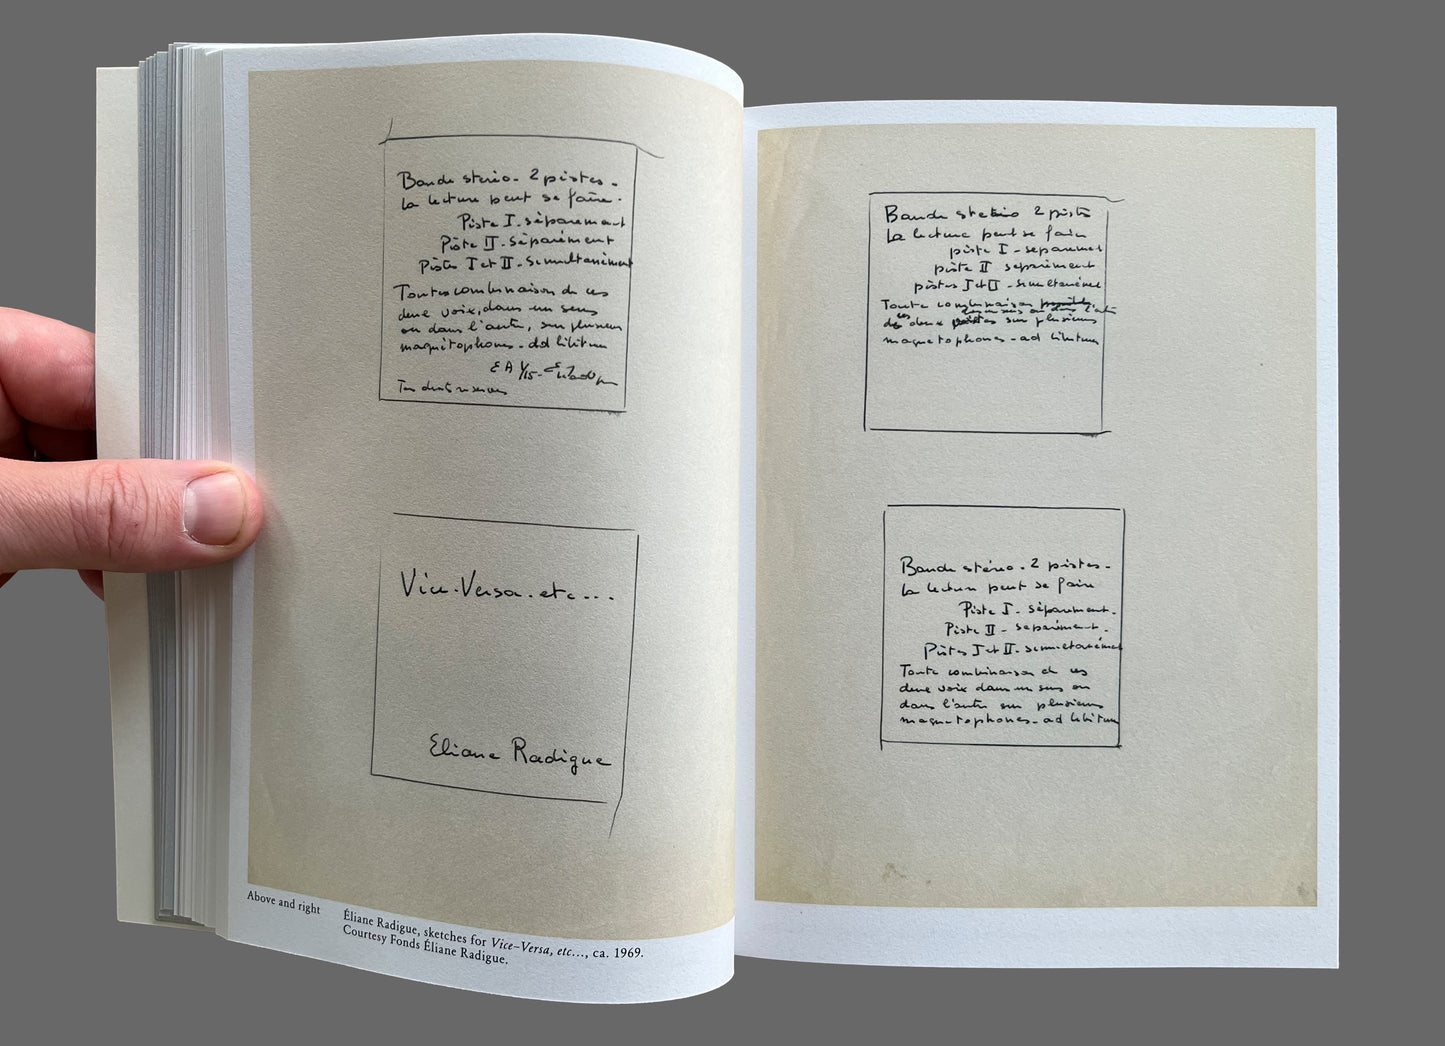 Bande stéréo - 2 pistes -
La lecture peut se faire -
Piste I - séparément
Piste II - séparément
Pistes I et II - simultanément
Toutes combinaison de ces
deux voix, dans un sens
ou dans l'autre, sur plusieurs
magnétophones - ad libitum
EA 1/15 -
Tous droits réservés
Vice-Versa. etc...
Eliane Radigue
Above and right
Éliane Radigue, sketches for Vice–Versa, etc..., ca. 1969.
Courtesy Fonds Éliane Radigue.
Bande stéréo 2 pistes
La lecture peut se faire
piste I - séparément
piste II séparément
pistes I et II - simultanément
Toute combinaison possible
dans un sens ou dans l'autre
de ces deux pistes sur plusieurs
magnetophones - ad libitum
Bande stéréo - 2 pistes -
La lecture peut se faire
Piste I - séparément -
Piste II - séparément -
Pistes I et II - simultanément
Toute combinaison de ces
deux voix dans un sens ou
dans l'autre sur plusieurs
magnetophones - ad libitum